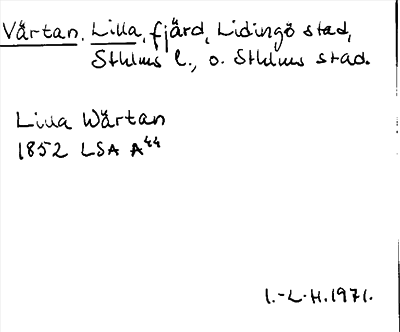 Värtan, Lilla, fjärd, Lidingö stad,
Sthlms l., o. Sthlms stad.
Lilla Wärtan
1852 LSA A44
I.-L.H.1971.